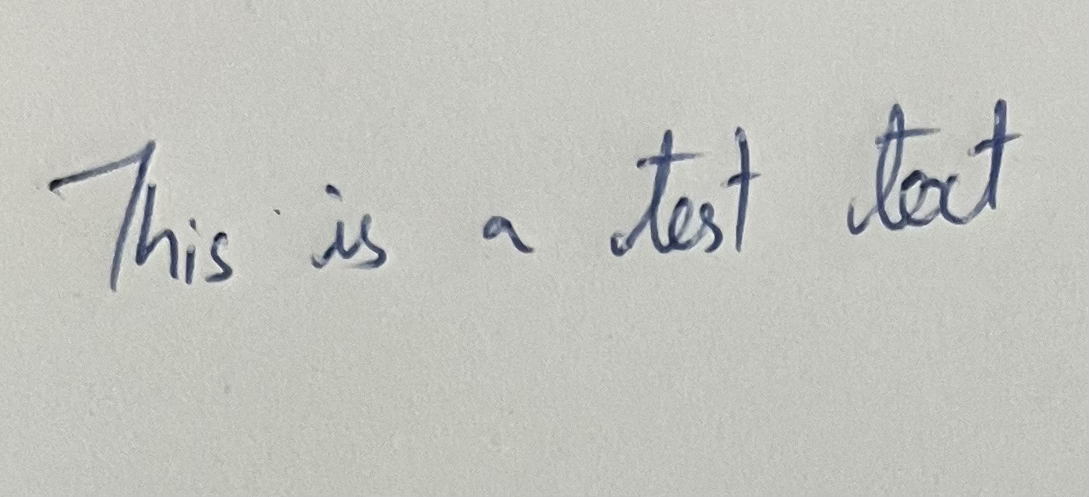 This is a test text